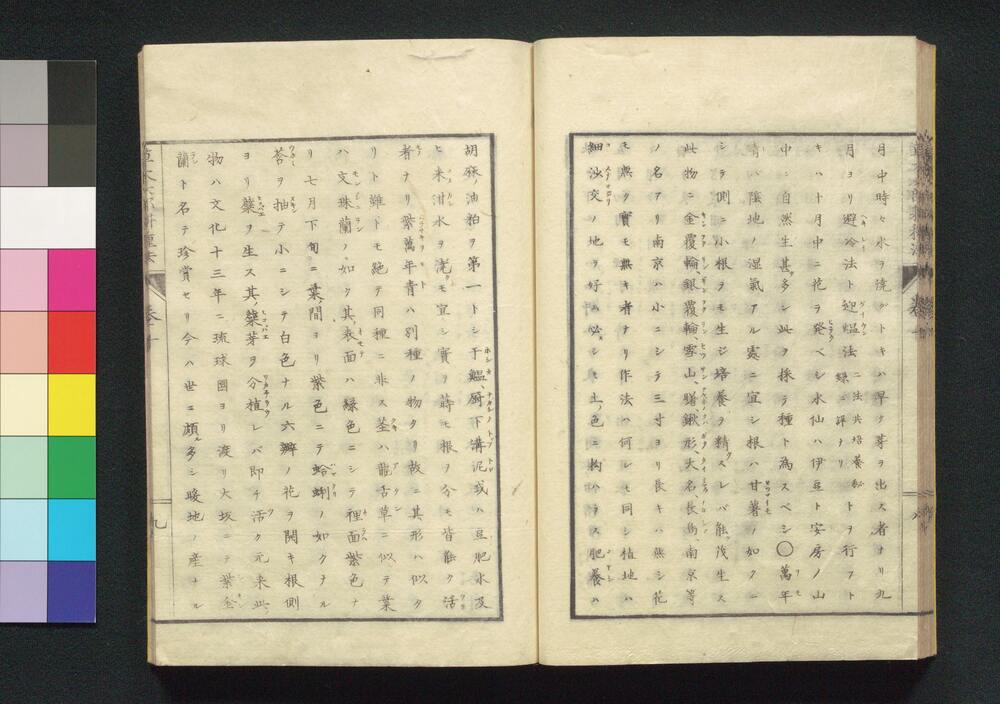 月中時々水ヲ澆グトキハ早ク芽ヲ出ス者ナリ九
月ヨリ避冷法ト迎熅法二法共培養秘録ニ詳ナリトヲ行フト
キハ十月中ニ花ヲ発ベシ水仙ハ伊豆ト安房ノ山
中ニ自然生甚多シ此ヲ採テ種ト為スベシ〇萬年
青ハ陰地ノ湿氣アル處ニ宜シ根ハ甘薯ノ如クニ
シテ側ニ小根ヲモ生ジ培養ヲ精スレバ能茂生ス
此物ニ金覆輪、銀覆輪、雪山、鍬形、大名、長嶋南京等
ノ名アリ南京ハ小ニシテ三寸ヨリ長キハ無シ花
モ無ク實モ無キ者ナリ作法ハ何レモ同シ植地ハ
細沙交ノ地ヲ好ム必シモ土色ニ拘ハラス肥養ハ
胡麻ノ油粕ヲ第一トシ干鰮、厨下溝泥或ハ豆肥水及
ヒ米泔水ヲ澆モ宜シ實ヲ蒔モ根ヲ分モ皆能ク活
者ナリ紫萬年青ハ別種ノ物タリ故ニ其形ハ似タ
リト雖ドモ絶テ同種ニ非ス茎ハ龍舌草ニ似テ葉
ハ文珠蘭ノ如ク其表面ハ緑色ニシテ裡面紫色ナ
リ七月下旬ニ葉間ヨリ紫色ニテ蛤蜊ノ如クナル
苔ヲ抽テ小ニシテ白色ナル六瓣ノ花ヲ開キ根側
ヨリ蘖ヲ生ス其蘖芽ヲ分植レバ即チ活ク元来此
物ハ文化十三年ニ琉球國ヨリ渡リ大坂ニテ紫金
蘭ト名テ珍賞セリ今ハ世ニ頗多シ暖地ノ産ナル
九